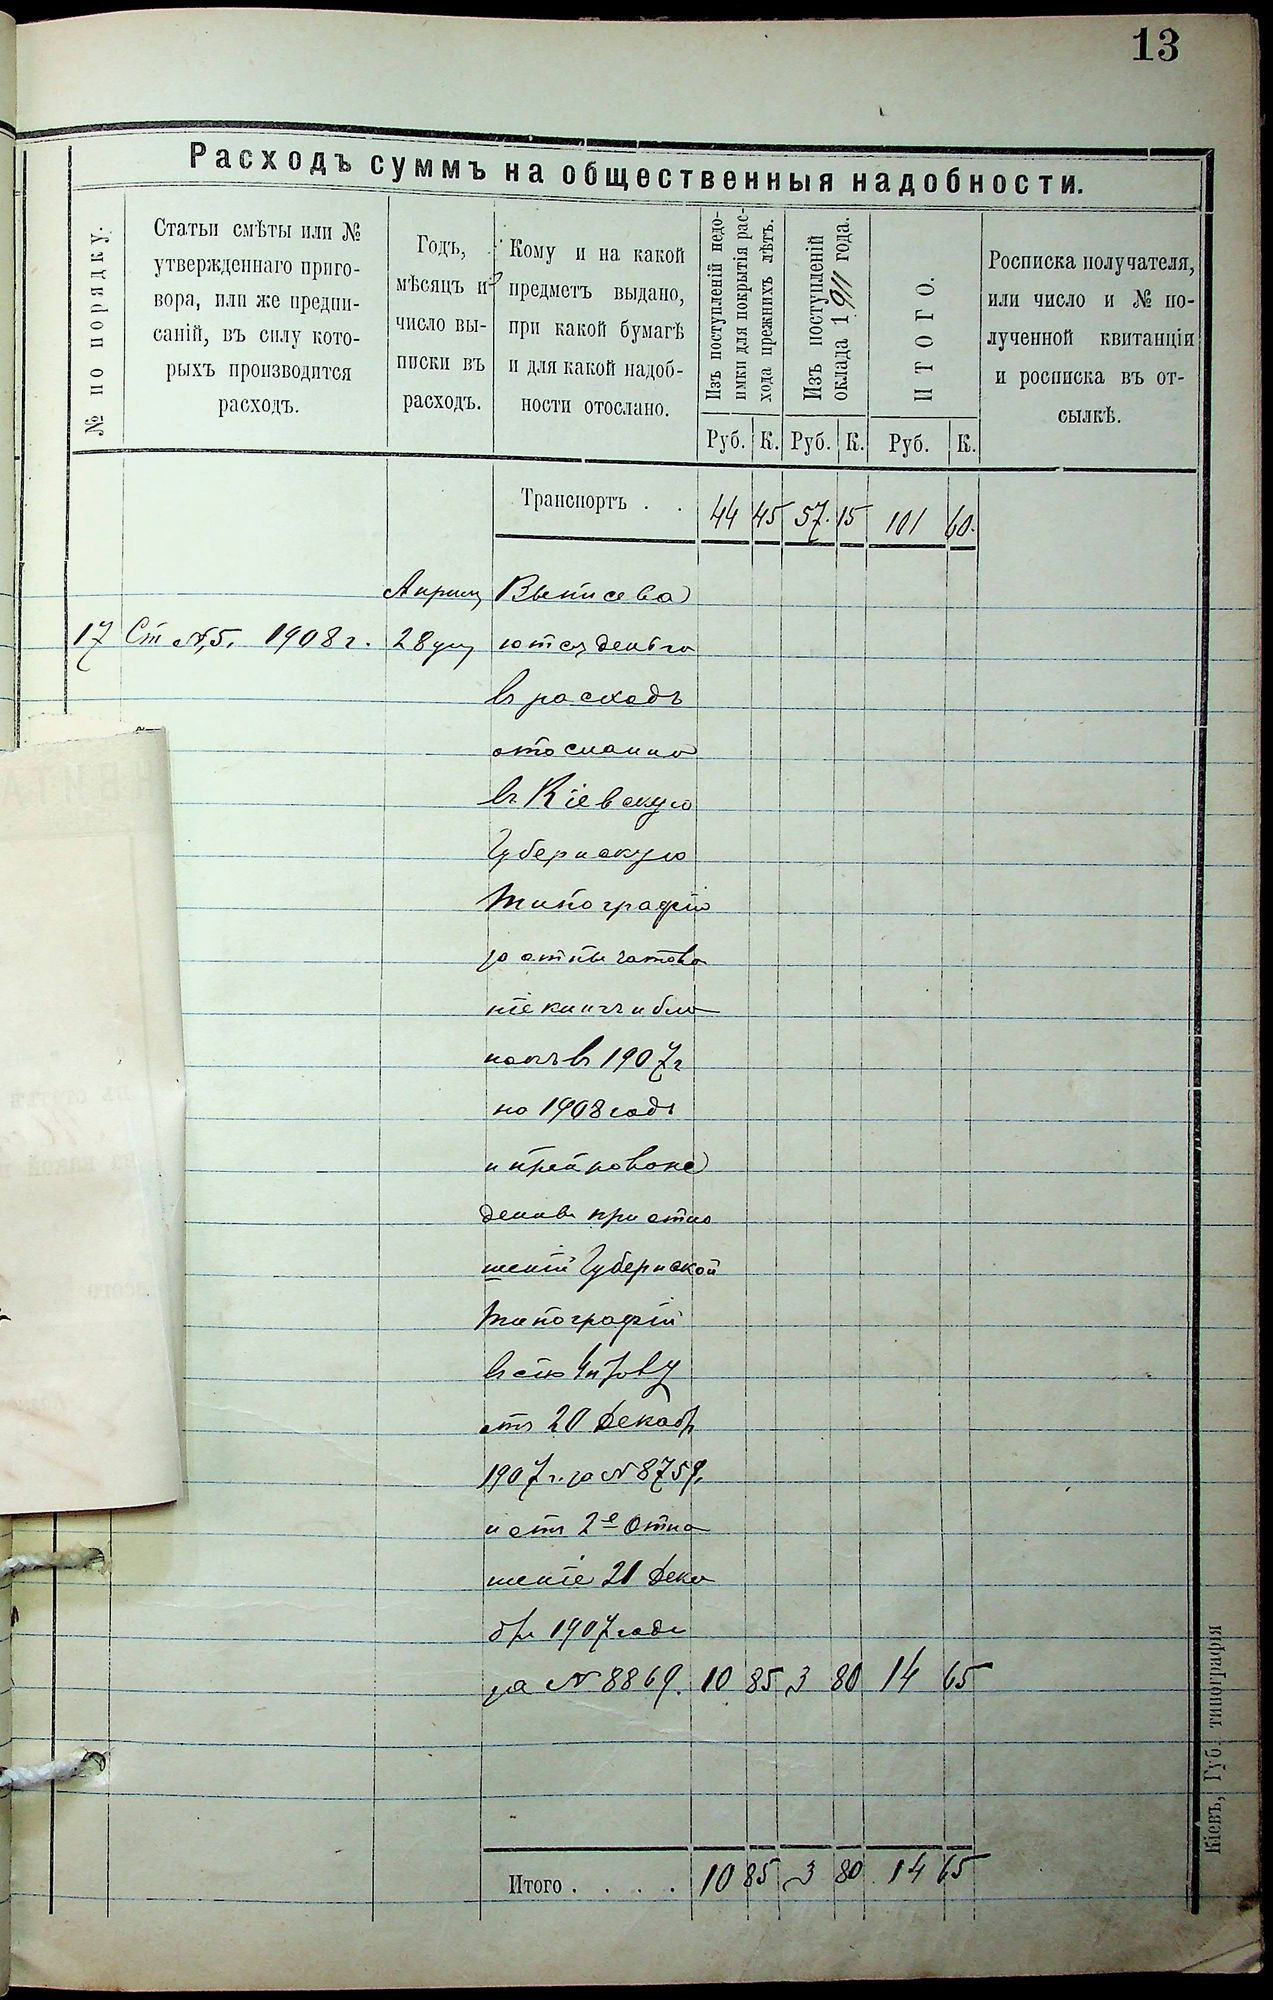 13
Расходъ суммъ на общественныя надобности.
№ по порядку.
Статьи смѣты или №
утвержденнаго приго-
вора, или же предпи-
саній, въ силу кото-
рыхъ производится
расходъ.
Годъ,
мѣсяцъ и
число вы-
писки въ
расходъ.
Кому и на какой
предметъ выдано,
при какой бумагѣ
и для какой надоб-
ности отослано.
Изъ поступленій недо-
имки для покрытія рас-
хода прежнихъ лѣтъ.
Изъ поступленій
оклада 1911 года.
ИТОГО.
Росписка получателя,
или число и № по-
лученной квитанціи
и росписка въ от-
сылкѣ.
Руб. К. Руб. К. Руб. К.
Транспортъ . . 44 45 57. 15 101 60.
Выписева
17 Ст №5. 1908 г. 28 ются деньги
въ расходъ
отосланно
въ Кіевскую
Губернскую
Типографію
за отпечатова
ніе книгъ и бла
нокъ въ 1907 г
на 1908 годъ
при отно
шеніи Губернской
Типографіи
отъ 20 Декабр
1907 г. за № 8759.
и отъ 2е Отно
шеніе 21 Дека
бря 1907 года
за № 8869. 10 85 3 80 14 65
Итого . . . . 10 85 3 80 14 65
Кіевъ, Губ. типографія